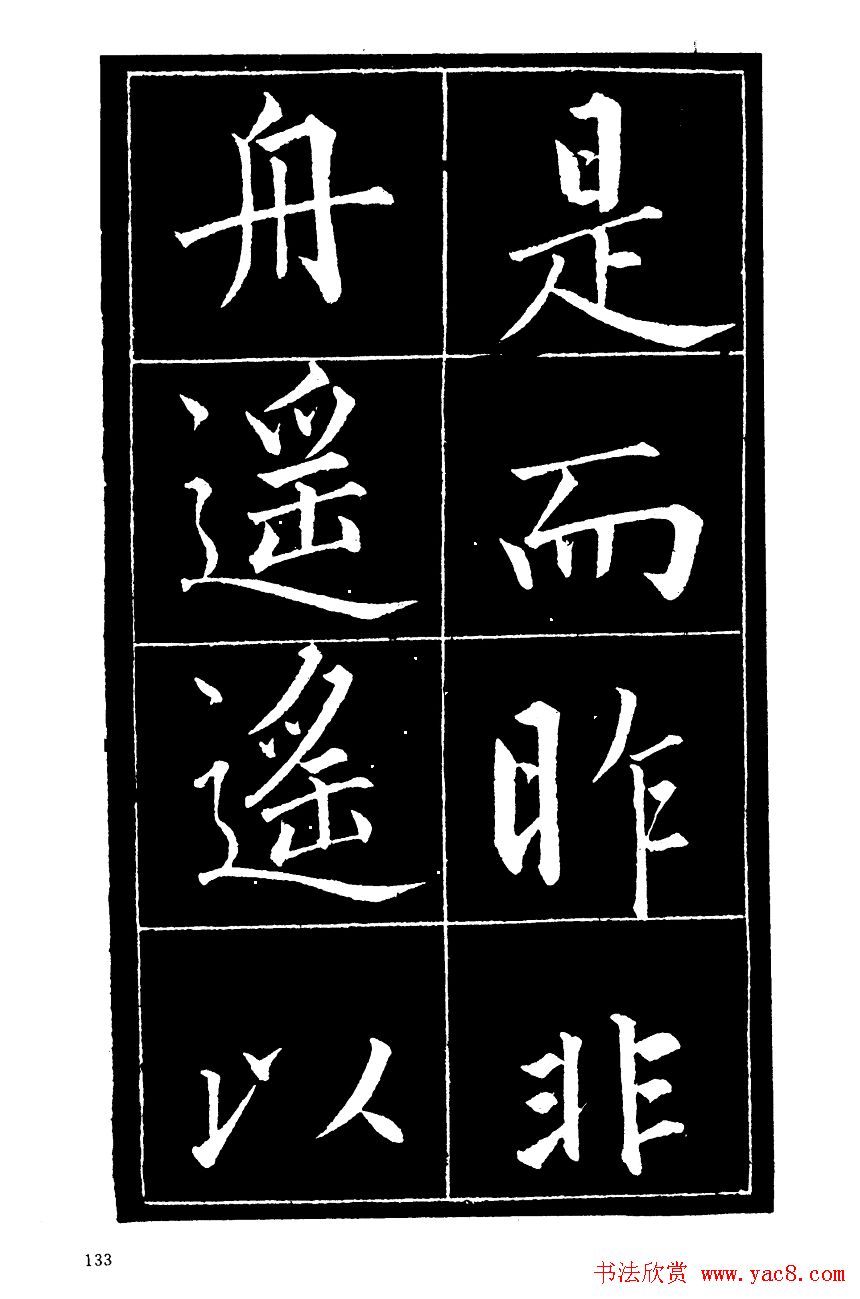 是而昨非
舟遥遥以
133
书法欣赏 www.yac8.com